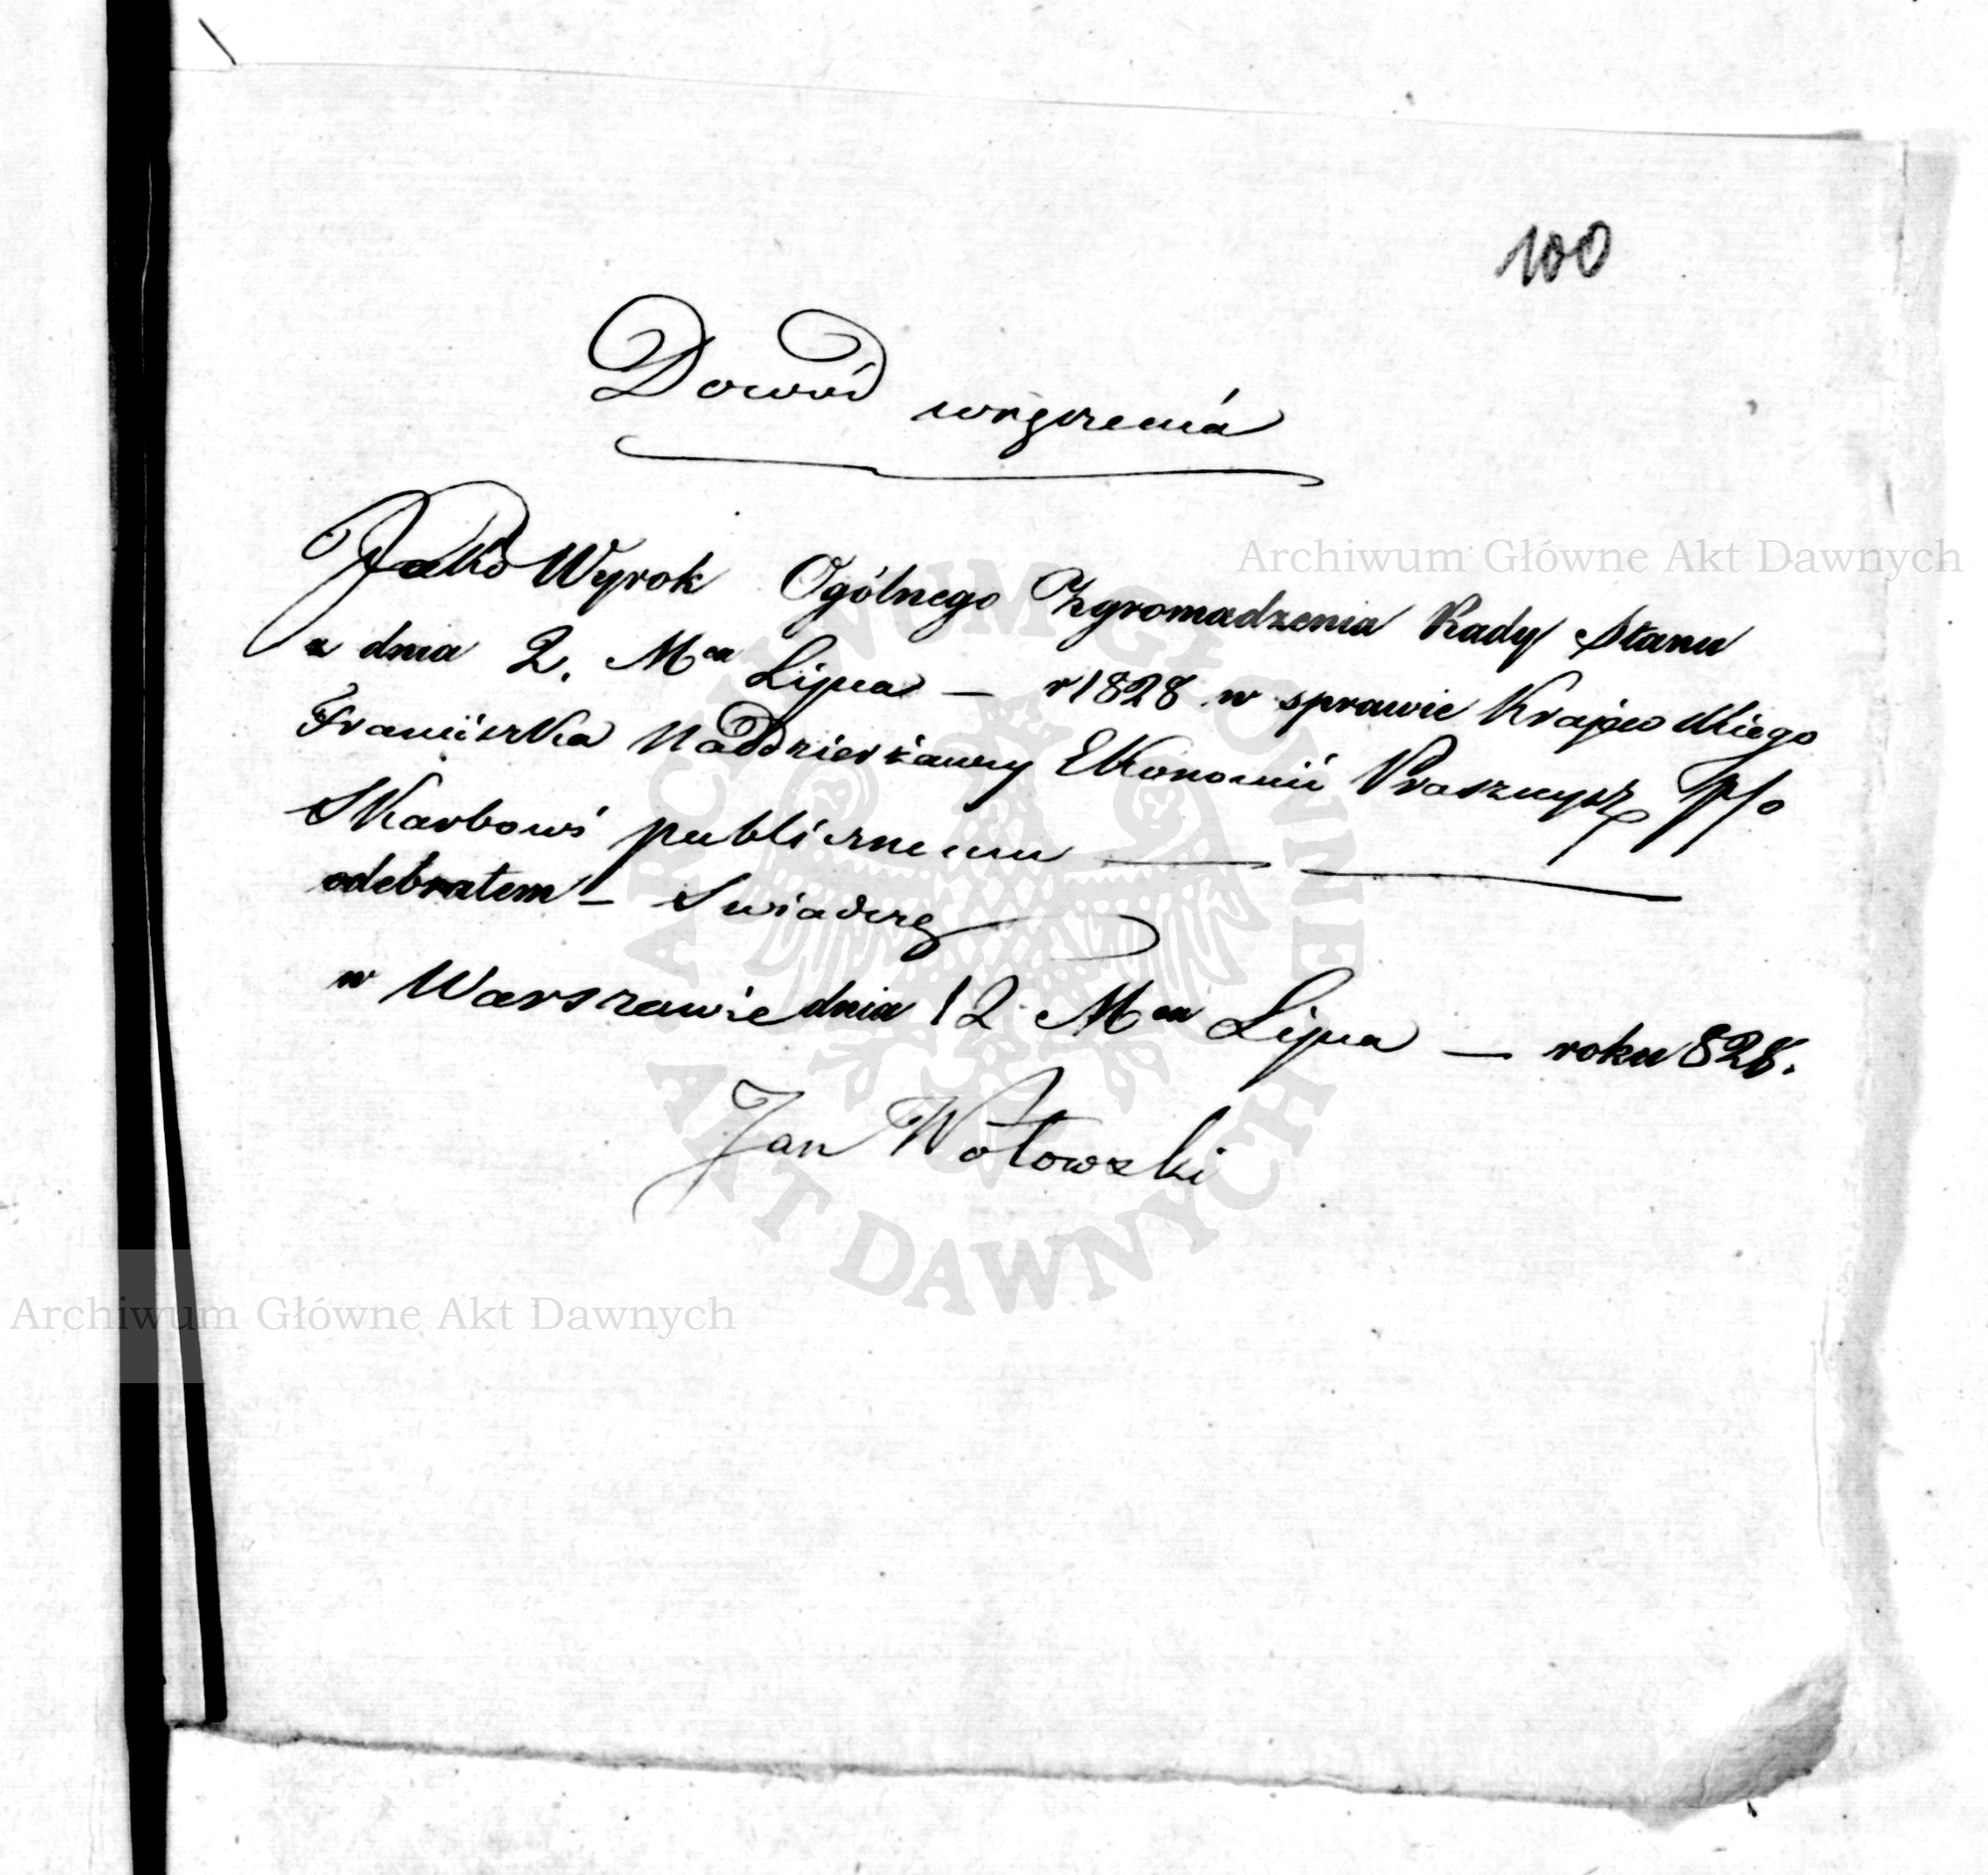 100
Dowód wręczenia
Jako Wyrok Ogólnego Zgromadzenia Rady Stanu
z dnia 2. Mca Lipca — r 1828 w sprawie Krajewskiego
Franciszka Naddzierżawcy Ekonomii Prasznysz p/o
Skarbowi publicznemu
odebrałem — Swiadczę
w Warszawie dnia 12 Mca Lipca — roku 828.
Jan Wołowski
Archiwum Główne Akt Dawnych
Archiwum Główne Akt Dawnych
ARCHIWUM GŁÓWNE AKT DAWNYCH